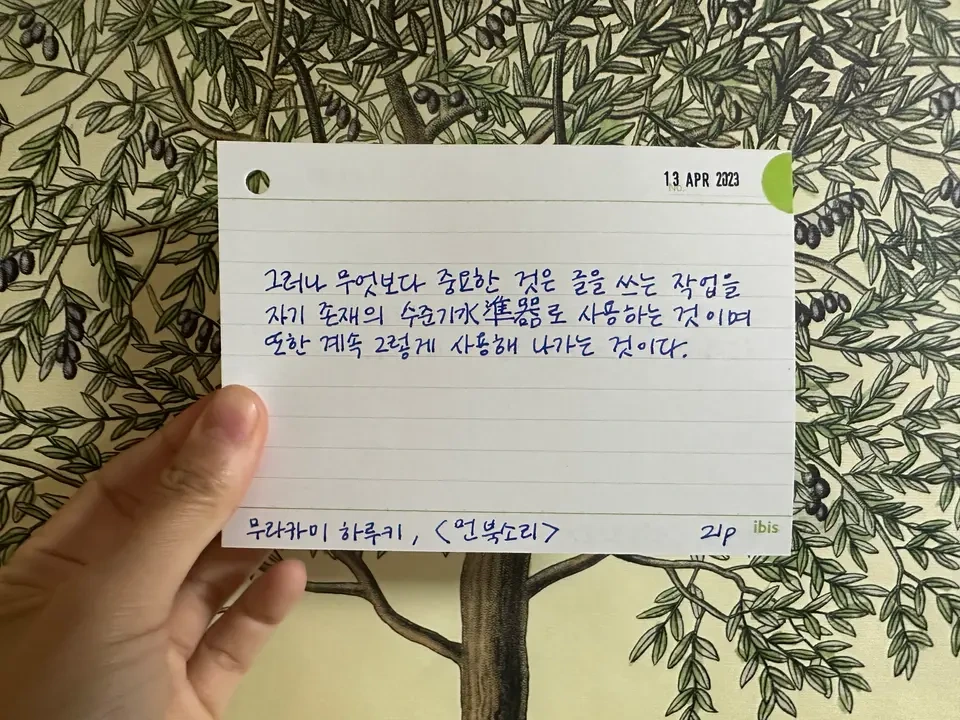 13 APR 2023
No.
그러나 무엇보다 중요한 것은 글을 쓰는 작업을
자기 존재의 수준기水準器로 사용하는 것이며
또한 계속 그렇게 사용해 나가는 것이다.
무라카미 하루키, <먼 북소리> 21p ibis